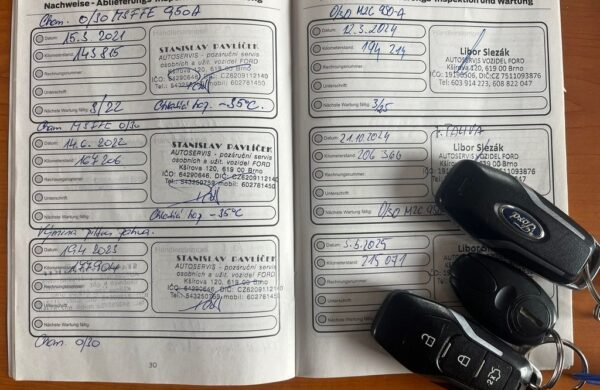 Nachweise - Ablieferungs-
Cham. 0/30 MSFFE 950A
Datum: 15.3 2021
Kilometerstand: 143 815
Rechnungsnummer:
Unterschrift
Nächste Wartung fällig: 3/22
STANISLAV PAVLÍČEK
AUTOSERVIS - pozáruční servis
osobních a užit. vozidel FORD
Kšírova 120, 619 00 Brno
IČO: 64290646, DIČ: CZ6209112140
Tel.: 543250759 mobil: 602761450
-35°C.
Cham MSFFE 0/30
Datum: 14.6. 2022
Kilometerstand: 164 206
Rechnungsnummer:
Unterschrift
Nächste Wartung fällig:
STANISLAV PAVLÍČEK
AUTOSERVIS - pozáruční servis
osobních a užit. vozidel FORD
Kšírova 120, 619 00 Brno
IČO: 64290646, DIČ: CZ6209112140
Tel.: 543250759 mobil: 602761450
-35°C
Datum: 19.4 2023
Kilometerstand: 177904
Rechnungsnummer:
Unterschrift
Nächste Wartung fällig:
STANISLAV PAVLÍČEK
AUTOSERVIS - pozáruční servis
osobních a užit. vozidel FORD
Kšírova 120, 619 00 Brno
IČO: 64290646, DIČ: CZ6209112140
Tel.: 543250759 mobil: 602761450
Cham. 0/30
30
Inspektion und Wartung
950-A
Datum: 12.3.2024
Kilometerstand: 194 214
Rechnungsnummer:
Unterschrift
Nächste Wartung fällig: 3/25
Libor Slezák
AUTOSERVIS VOZIDEL FORD
Kšírova 120, 619 00 Brno
DIČ:CZ 7511093876
Tel: 603 914 273, 608 822 047
Datum: 21.10.2024
Kilometerstand: 206 366
Rechnungsnummer:
Unterschrift
Nächste Wartung fällig:
Libor Slezák
AUTOSERVIS VOZIDEL FORD
Kšírova 120, 619 00 Brno
Datum: 2025
Kilometerstand: 215 071
Rechnungsnummer:
Unterschrift
Nächste Wartung fällig:
Ford